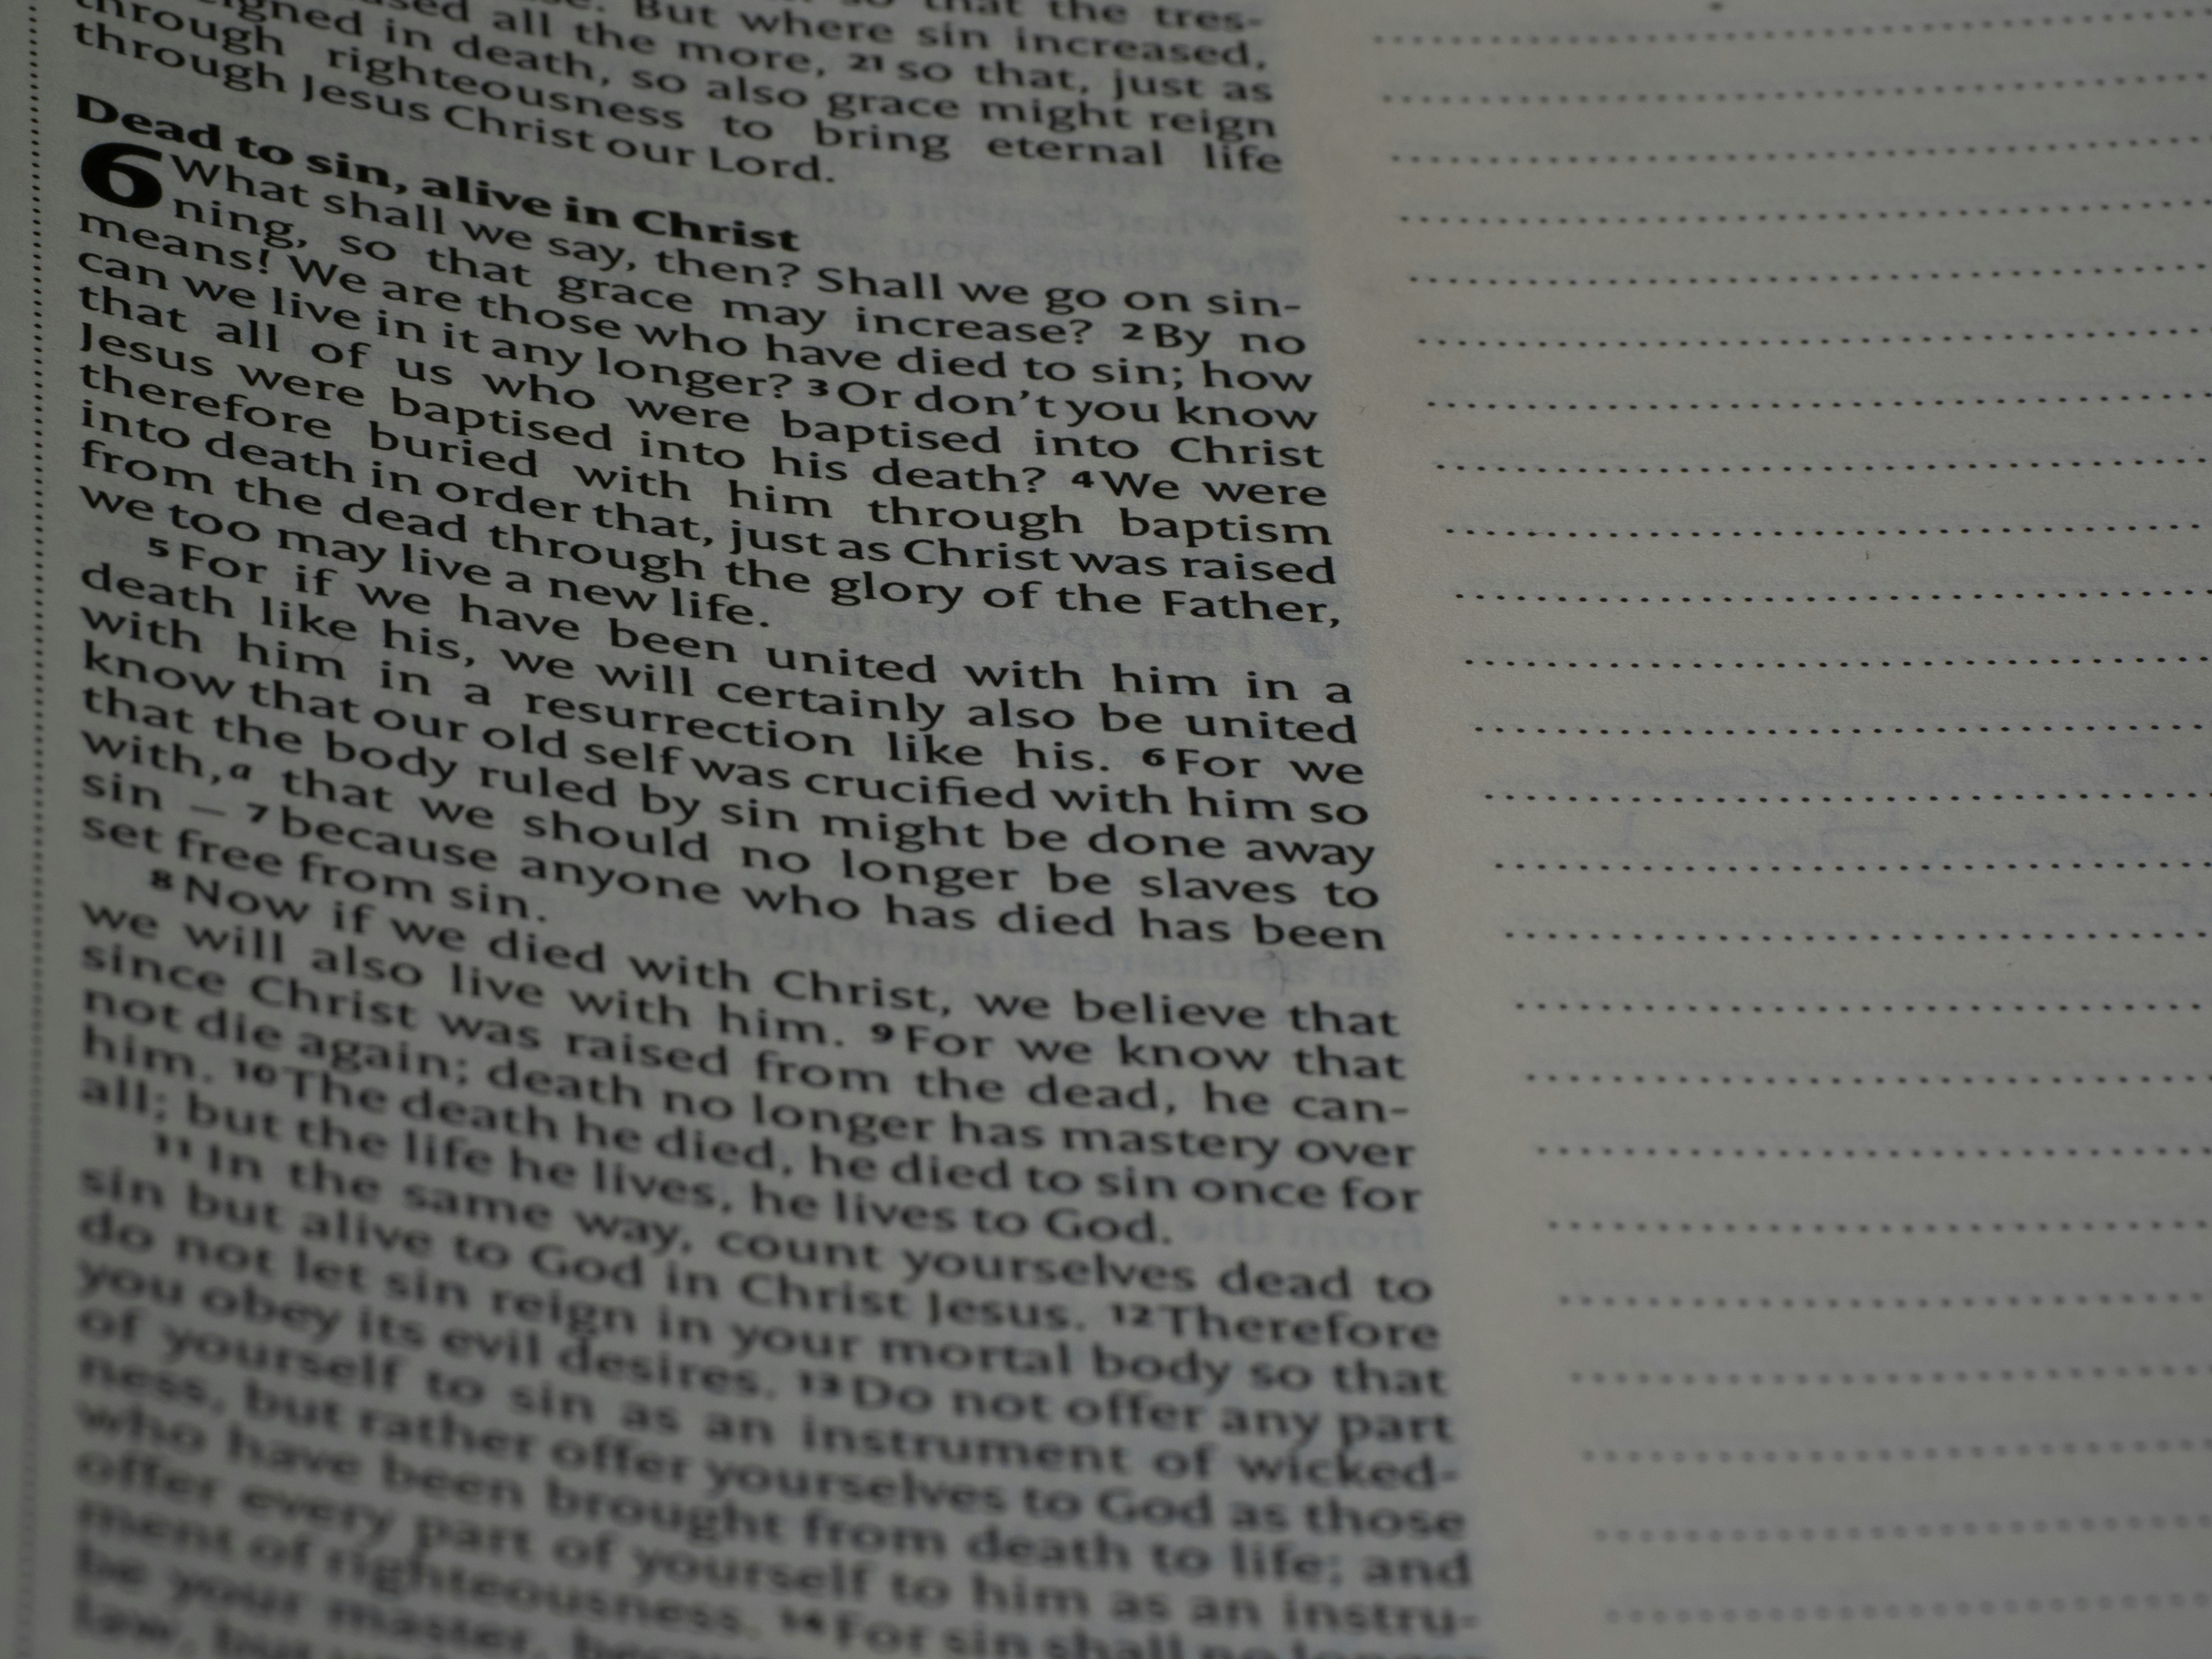 that the tres-
But where sin increased,
all the more, 21 so that, just as
in death, so also grace might reign
through righteousness to bring eternal life
through Jesus Christ our Lord.
Dead to sin, alive in Christ
6 What shall we say, then? Shall we go on sin-
ning, so that grace may increase? 2 By no
means! We are those who have died to sin; how
can we live in it any longer? 3 Or don't you know
that all of us who were baptised into Christ
Jesus were baptised into his death? 4 We were
therefore buried with him through baptism
into death in order that, just as Christ was raised
from the dead through the glory of the Father,
we too may live a new life.
5 For if we have been united with him in a
death like his, we will certainly also be united
with him in a resurrection like his. 6 For we
know that our old self was crucified with him so
that the body ruled by sin might be done away
with,a that we should no longer be slaves to
sin – 7 because anyone who has died has been
set free from sin.
8 Now if we died with Christ, we believe that
we will also live with him. 9 For we know that
since Christ was raised from the dead, he can-
not die again; death no longer has mastery over
him. 10 The death he died, he died to sin once for
all; but the life he lives, he lives to God.
11 In the same way, count yourselves dead to
sin but alive to God in Christ Jesus. 12 Therefore
do not let sin reign in your mortal body so that
you obey its evil desires. 13 Do not offer any part
of yourself to sin as an instrument of wicked-
ness, but rather offer yourselves to God as those
who have been brought from death to life; and
offer every part of yourself to him as an instru-
ment of righteousness. 14 For sin shall no longer
be your master,
law, but